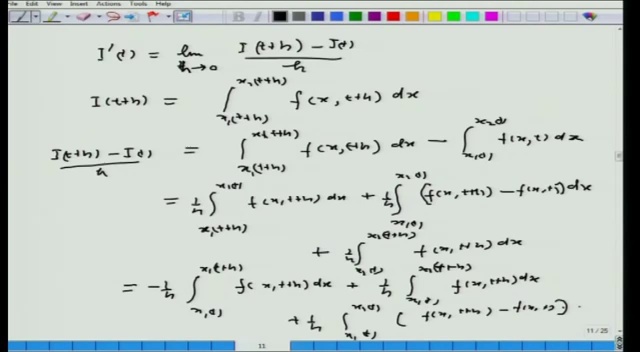 File Edit View Insert Actions Tools Help
I'(t) = lim_{h→0} \frac{I(t+h) - I(t)}{h}
I(t+h) = ∫_{x_1(t+h)}^{x_2(t+h)} f(x, t+h) dx
\frac{I(t+h) - I(t)}{h} = ∫_{x_1(t+h)}^{x_2(t+h)} f(x, t+h) dx - ∫_{x_1(t)}^{x_2(t)} f(x, t) dx
= \frac{1}{h} ∫_{x_1(t+h)}^{x_1(t)} f(x, t+h) dx + \frac{1}{h} ∫_{x_1(t)}^{x_2(t)} (f(x, t+h) - f(x, t)) dx
+ \frac{1}{h} ∫_{x_2(t)}^{x_2(t+h)} f(x, t+h) dx
= -\frac{1}{h} ∫_{x_1(t)}^{x_1(t+h)} f(x, t+h) dx + \frac{1}{h} ∫_{x_2(t)}^{x_2(t+h)} f(x, t+h) dx
+ \frac{1}{h} ∫_{x_1(t)}^{x_2(t)} (f(x, t+h) - f(x, t)) .
11 / 25
11